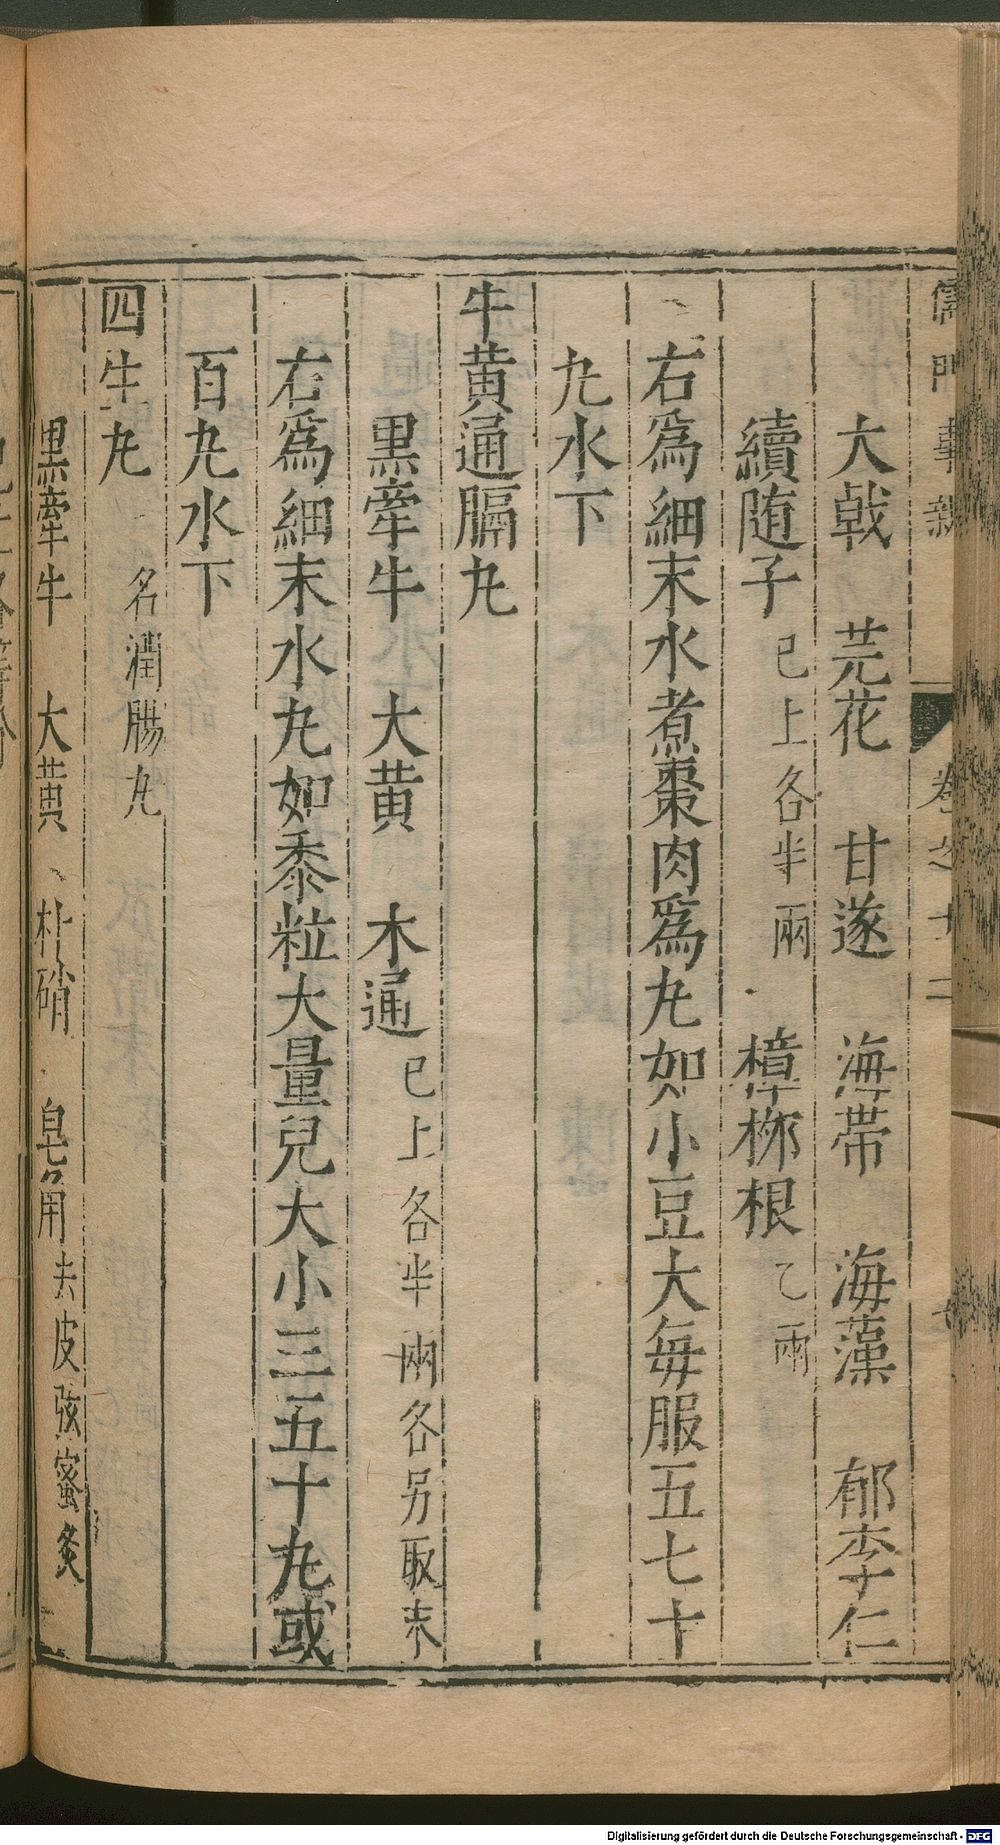 儒門事親 卷之十二
大戟 芫花 甘遂 海帶 海藻 郁李仁
續随子 已上各半兩 樟柳根 乙兩
右爲細末水煮棗肉爲丸如小豆大每服五七十
丸水下
牛黄通膈丸
黑牽牛 大黄 木通 已上各半兩各另取末
右爲細末水丸如黍粒大量兒大小三五十丸或
百丸水下
四生丸 名潤腸丸
黑牽牛 大黄 朴硝 皂角 去皮弦蜜炙
Digitalisierung gefördert durch die Deutsche Forschungsgemeinschaft - DFG